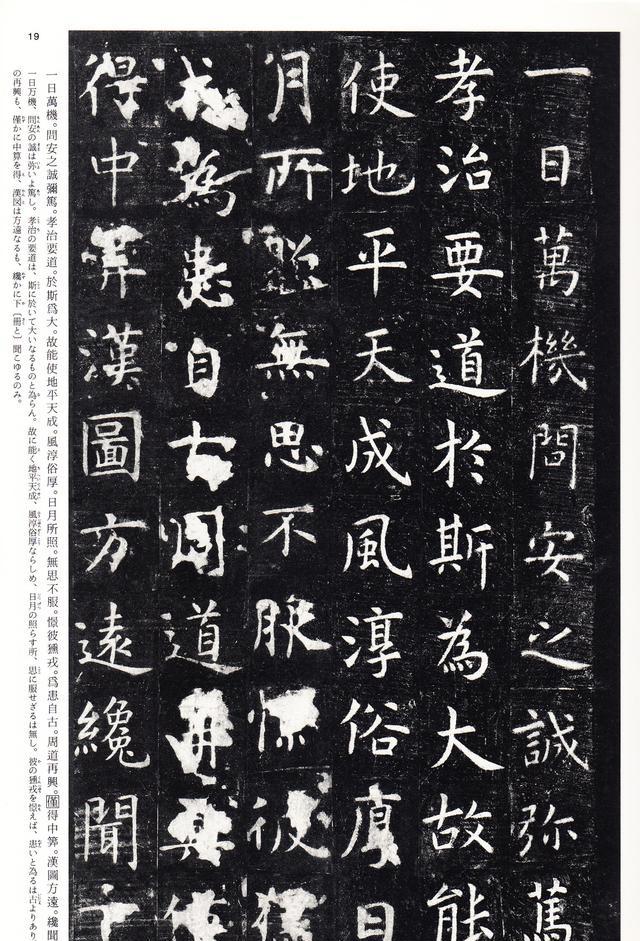 一日萬機問安之誠弥篤
孝治要道於斯為大故能
使地平天成風淳俗厚日
月所照無思不服憬彼獫
戎為患自古周道再興僅
得中筭漢圖方遠纔聞下
一日萬機。問安之誠彌篤。孝治要道。於斯爲大。故能使地平天成。風淳俗厚。日月所照。無思不服。憬彼獫戎。爲患自古。周道再興。僅得中筭。漢圖方遠。纔聞
一日万機、問安の誠は弥いよ篤し。孝治の要道は、斯に於いて大いなるものと為らん。故に能く地平天成、風淳俗厚ならしめ、日月の照らす所、思に服せざるは無し。彼の獫戎を憬えば、患いと為るは古よりあり。
の再興も、僅かに中算を得、漢図は方遠なるも、纔かに下〔冊と〕聞こゆるのみ。
19